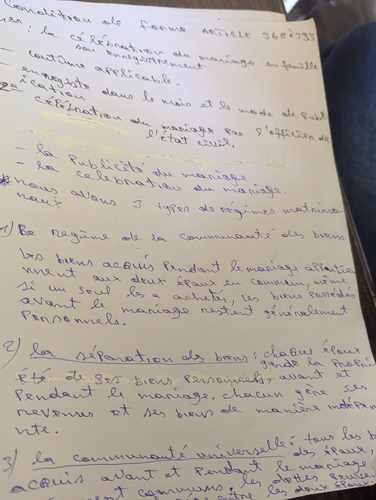 Condition de forme ARTICLE 368 à 393
1er: la célébration du mariage en famille
son enregistrement
- coutume applicable.
- enregistré dans le mois et le mode de publ
ication
2e= célébration du mariage par l'officier de
l'état civil.
- la publicité du mariage
- la celebration du mariage.
* nous avons 3 types de régimes matrimo
niaux
1) Le regime de la communauté des biens
Les biens acquis pendant le mariage appartie
nnent aux deux époux en commun, même
si un seul les a achetés, les biens possédés
avant le mariage restent généralement
Personnels.
2) la séparation des biens: chaque époux
garde la propri
été de ses biens personnels, avant et
Pendant le mariage. chacun gère ses
revenus et ses biens de manière indépenda
nte.
3) la communauté universelle: tous les b
des époux,
acquis avant et pendant le mariage
communs, les dettes
entre les deux époux